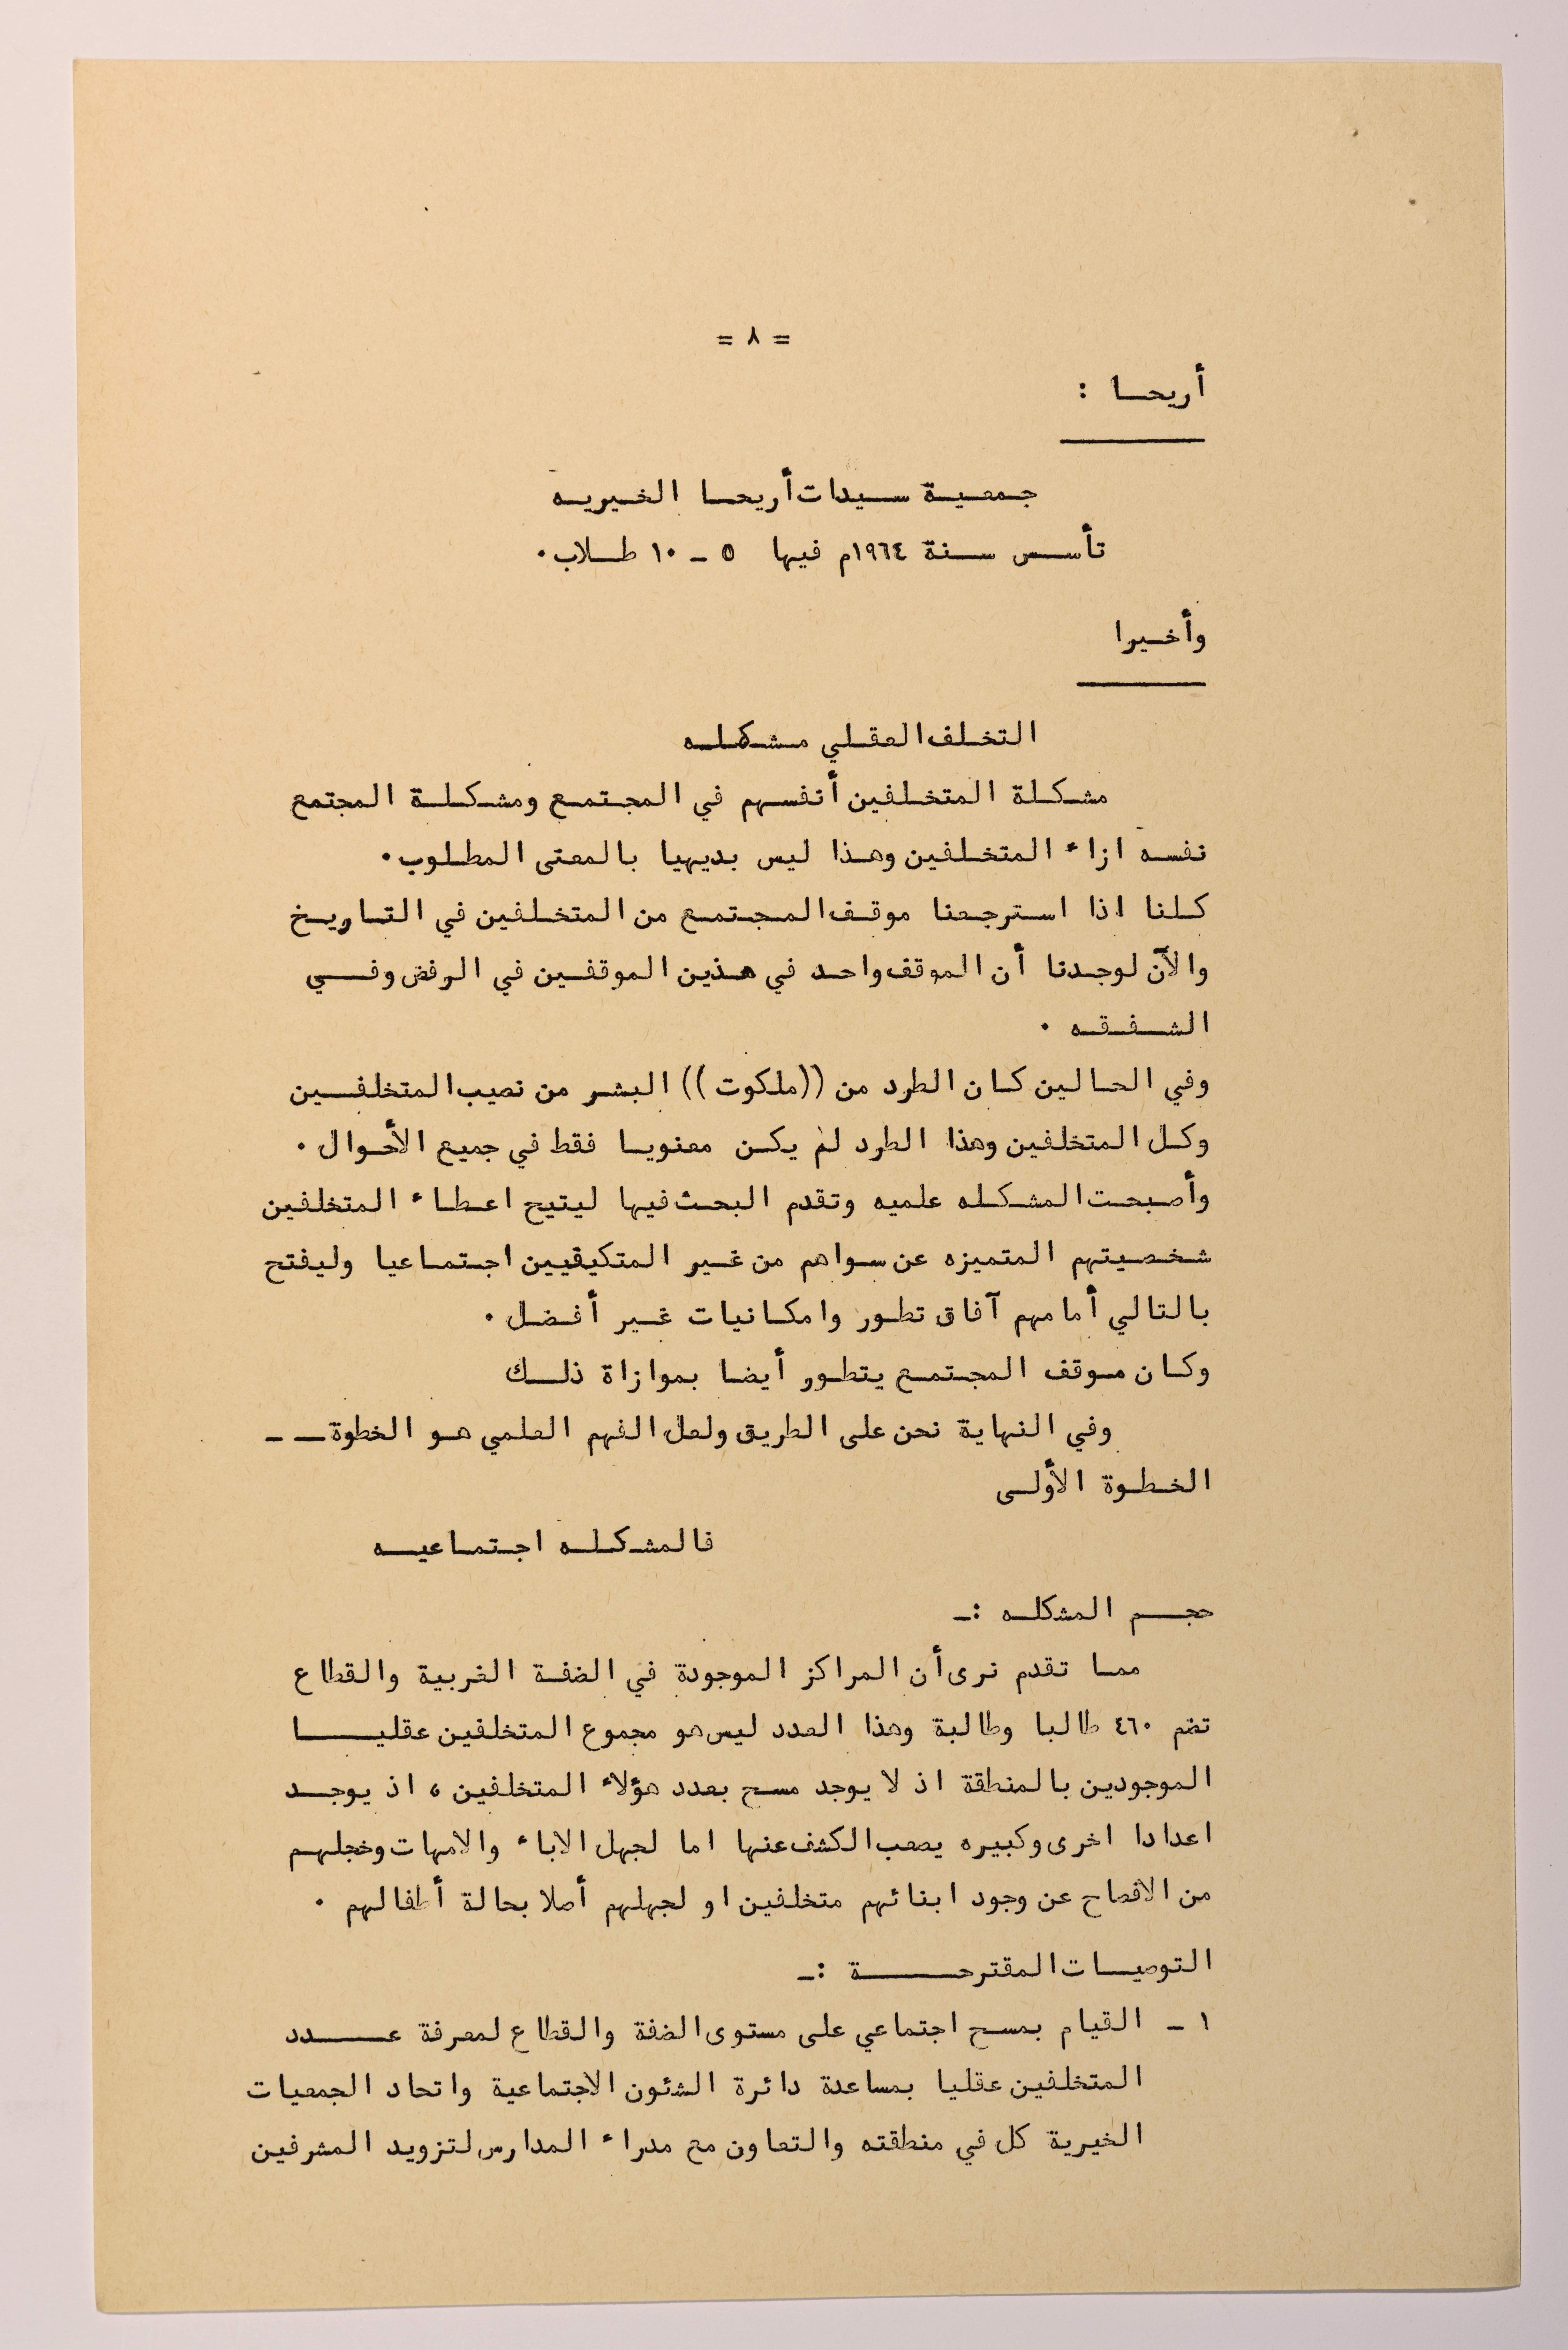 = ٨ =
أريحا :
جمعية سيدات أريحا الخيريه
تأسس سنة ١٩٦٤م فيها ٥ ـ ١٠ طلاب ٠
وأخيرا
التخلف العقلي مشكله
مشكلة المتخلفين أنفسهم في المجتمع ومشكلة المجتمع
نفسه ازاء المتخلفين وهذا ليس بديهيا بالمعنى المطلوب ٠
كلنا اذا استرجعنا موقف المجتمع من المتخلفين في التاريخ
والآن لوجدنا أن الموقف واحد في هذين الموقفين في الرفض وفي
الشفقه ٠
وفي الحالين كان الطرد من ((ملكوت)) البشر من نصيب المتخلفين
وكل المتخلفين وهذا الطرد لم يكن معنويا فقط في جميع الأحوال ٠
وأصبحت المشكله علميه وتقدم البحث فيها ليتيح اعطاء المتخلفين
شخصيتهم المتميزه عن سواهم من غير المتكيفيين اجتماعيا وليفتح
بالتالي أمامهم آفاق تطور وامكانيات غير أفضل ٠
وكان موقف المجتمع يتطور أيضا بموازاة ذلك
وفي النهاية نحن على الطريق ولعل الفهم العلمي هو الخطوة ــ ـ
الخطوة الأولى
فالمشكله اجتماعيه
حجم المشكله :ـ
مما تقدم نرى أن المراكز الموجودة في الضفة الغربية والقطاع
تضم ٤٦٠ طالبا وطالبة وهذا العدد ليس هو مجموع المتخلفين عقليا
الموجودين بالمنطقة اذ لا يوجد مسح بعدد هؤلاء المتخلفين ، اذ يوجد
اعدادا اخرى وكبيره يصعب الكشف عنها اما لجهل الاباء والامهات وخجلهم
من الافصاح عن وجود ابنائهم متخلفين او لجهلهم أصلا بحالة أطفالهم ٠
التوصيات المقترحة :ـ
١ ـ القيام بمسح اجتماعي على مستوى الضفة والقطاع لمعرفة عدد
المتخلفين عقليا بمساعدة دائرة الشئون الاجتماعية واتحاد الجمعيات
الخيرية كل في منطقته والتعاون مع مدراء المدارس لتزويد المشرفين